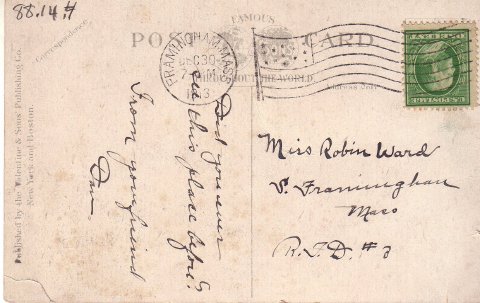 88.14.#
Correspondence
FAMOUS
POST CARD
ABOUT THE WORLD.
Address Only
FRAMINGHAM, MASS.
DEC 30
Published by the Valentine & Sons' Publishing Co.
New York and Boston.
Did you ever
see this place before?
From your friend
Dan
Miss Robin Ward
S. Framingham
Mass
R.F.D. #3
U.S. POSTAGE